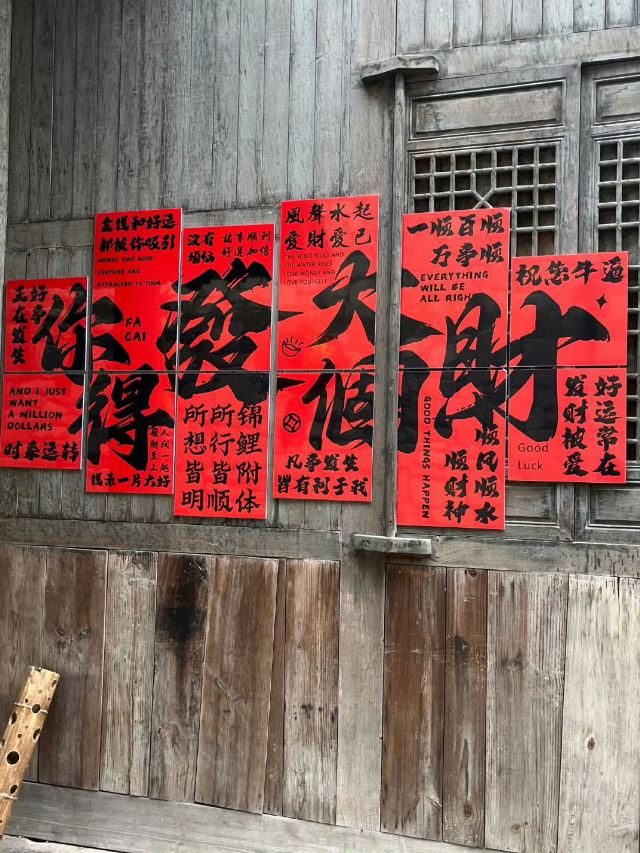 你得發大個財
好事
正在发生
AND I JUST
WANT
A NILLION
DOLLARS
时来运转
金钱和好运
都被你吸引
MONEY AND GOOD
FORTUNE ARE
ATTRACTED TO YOUR
FA
CAI
人间一趟
一片大好
没有
烦恼
諸事順利
好運加倍
锦鲤附体
所行皆顺
所想皆明
風聲水起
爱財愛己
THE WIND RISES AND
THE WATER RISES
LOVE MONEY AND
LOVE YOURSELF
凡事发生
皆有利于我
一顺百顺
万事顺
EVERYTHING
WILL BE
ALL RIGH
GOOD THINGS HAPPEN
顺风顺水
顺财神
祝您牛逼
Good
Luck
好运常在
发财被爱